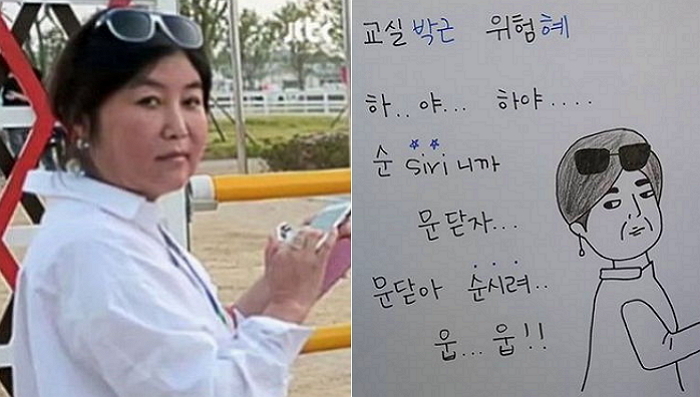 jtbc
교실박근 위험혜
하..야... 하야.....
순 siri니까
문닫자...
문닫아 순시려..
웁...웁!!